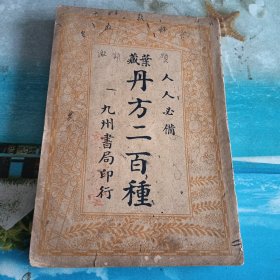 人人必備
葉藏
丹方二百種
九州書局印行